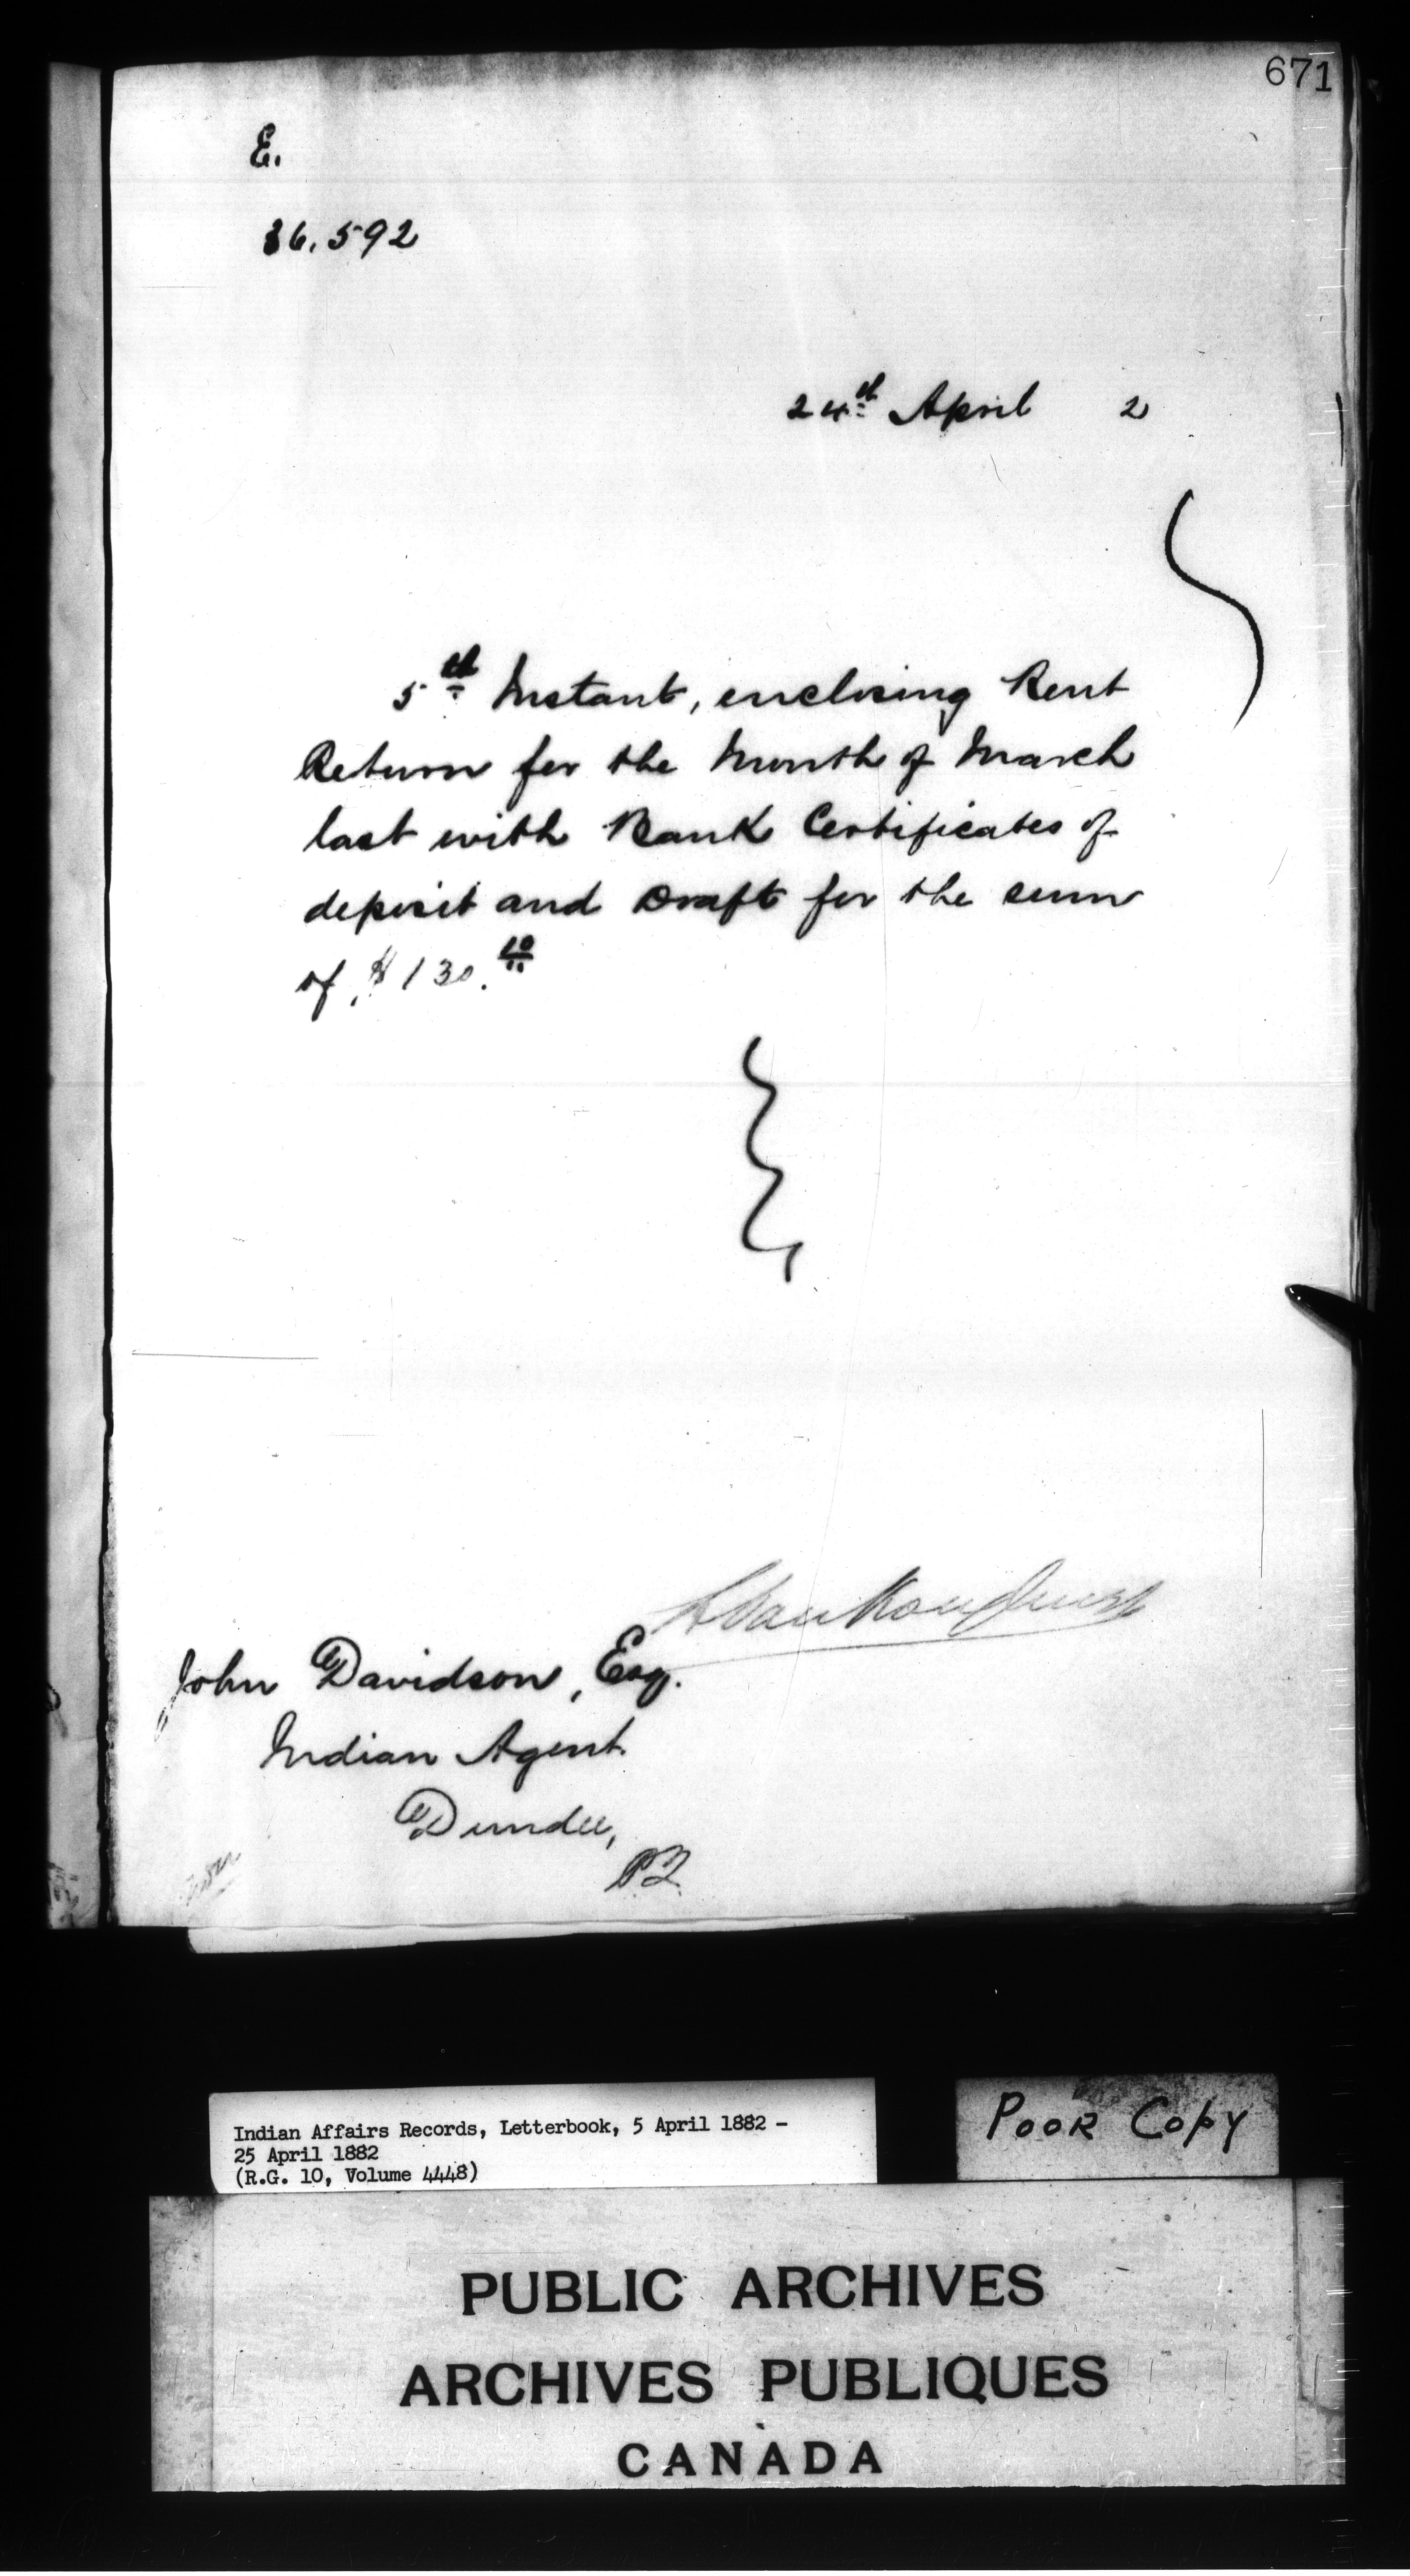 671
E.
36.592
24th April 2
5th Instant, enclosing Rent
Return for the Month of March
last with Bank Certificates of
deposit and Draft for the sum
of $130.10
L VanKoughnet
John Davidson, Esq.
Indian Agent.
Dundee,
P.Q.
Indian Affairs Records, Letterbook, 5 April 1882 -
25 April 1882
(R.G. 10, Volume 4448)
POOR COPY
PUBLIC ARCHIVES
ARCHIVES PUBLIQUES
CANADA